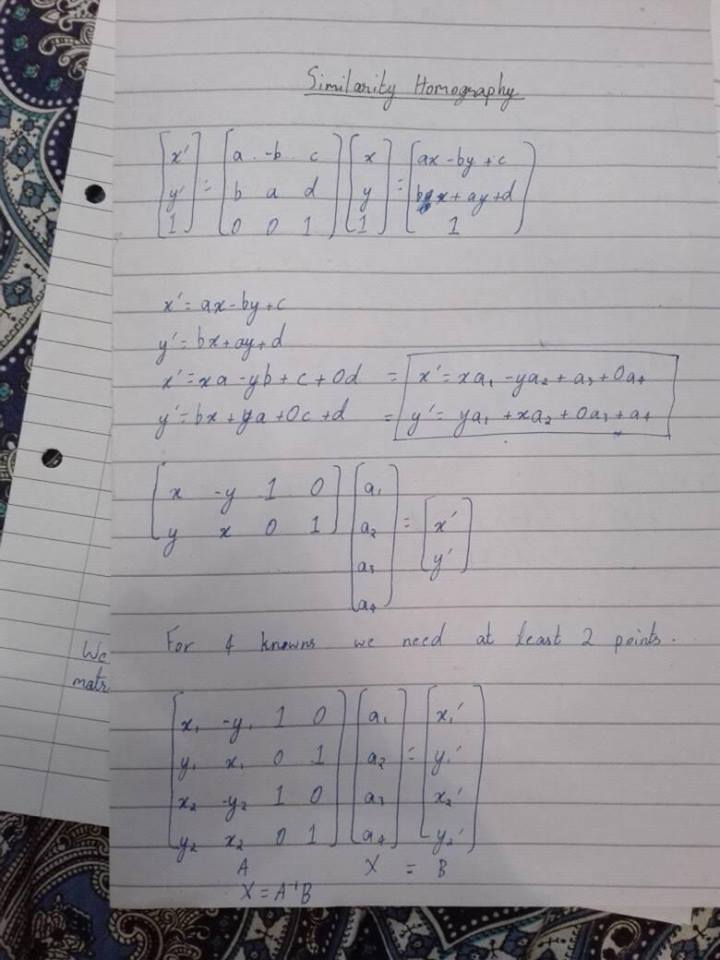 Similarity Homography
[x' y' 1] = [a -b c; b a d; 0 0 1] [x y 1] = [ax - by + c; bx + ay + d; 1]
x' = ax - by + c
y' = bx + ay + d
x' = xa - yb + c + 0d = x' = xa₁ - ya₂ + a₃ + 0a₄
y' = bx + ya + 0c + d = y' = ya₁ + xa₂ + 0a₃ + a₄
[x -y 1 0; y x 0 1] [a₁ a₂ a₃ a₄] = [x' y']
For 4 knowns we need at least 2 points.
We
matr
[x₁ -y₁ 1 0; y₁ x₁ 0 1; x₂ -y₂ 1 0; y₂ x₂ 0 1] [a₁ a₂ a₃ a₄] = [x₁' y₁' x₂' y₂']
A X = B
X = A⁻¹B